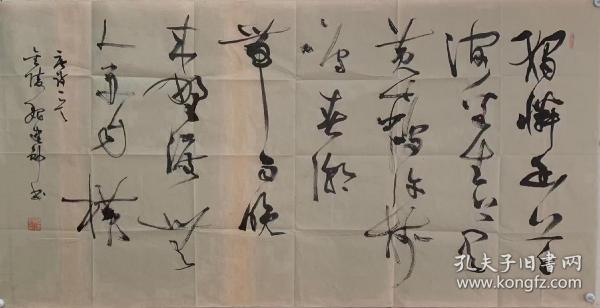 独怜幽草
涧边生上有
黄鹂深树
鸣春潮
带雨晚
来野渡无
人舟自横
唐诗一首
金陵
书
孔夫子旧书网
www.kongfz.com